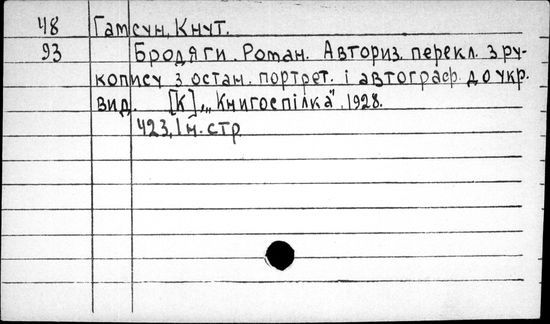 48 Гамсун, Кнут.
93 Бродяги. Роман. Авториз. перекл. з ру-
копису з остан. портрет. і автограф. до укр.
вид. [К], „Книгоспілка". 1928.
423, 1 н. стр